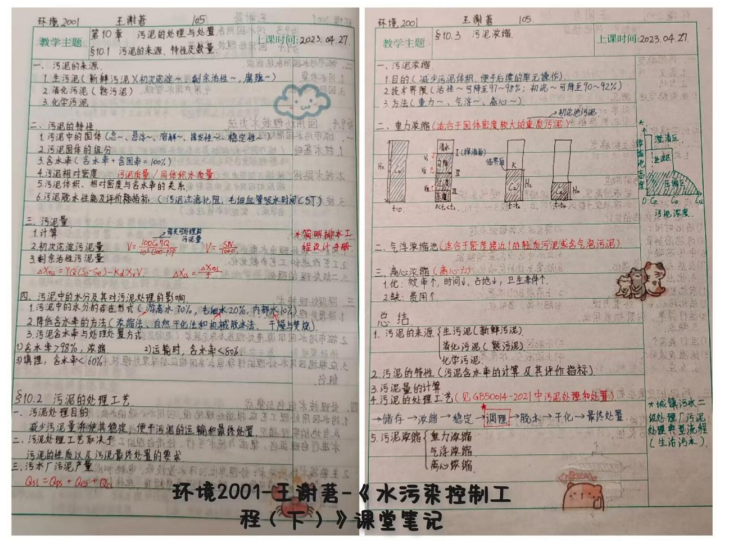 环境2001 王谢茗 105
教学主题 第10章 污泥的处理与处置 上课时间:2023.04.27.
§10.1 污泥的来源、特性及数量
一、污泥的来源
1.生污泥(新鲜污泥)(初次沉淀~,剩余活性~,腐殖~)
2.消化污泥(熟污泥)
3.化学污泥
二、污泥的特性
1.污泥中的固体
2.污泥固体的组分
3.含水率(含水率+含固率=100%)
4.污泥相对密度 污泥质量/同体积水质量
5.污泥体积、相对密度与含水率的关系
6.污泥脱水性能及评价指标 (污泥过滤比阻,毛细血管吸水时间CST)
三、污泥量
1.计算
2.初次沉淀污泥量
3.剩余活性污泥量
*简明排水工
程设计手册
四、污泥中的水分及其对污泥处理的影响
1.污泥中的水分的存在形式(游离水70%,毛细水20%,内部水10%)
2.降低含水率的方法(浓缩法、自然干化法和机械脱水法、干燥与焚烧)
3.污泥含水率与处理处置方式
1)含水率>98%,浓缩 2)运输时,含水率<80%
3)填埋,含水率<60%
§10.2 污泥的处理工艺
一、污泥处理目的
减少污泥量并使其稳定,便于污泥的运输和最终处置
二、污泥处理工艺取决于
污泥的性质以及污泥最终处置的要求
三、污水厂污泥产量
环境2001 王谢茗 105
教学主题 §10.3 污泥浓缩 上课时间:2023.04.27.
一、污泥浓缩
1.目的(减少污泥体积,便于后续的单元操作)
2.技术界限(活性~可降至97~98%;初沉~可降至90~92%)
3.方法(重力~,气浮~,离心~)
初沉池污泥
二、重力浓缩(适合于固体密度较大的重质污泥)
澄清区
压缩区
污泥浓度
二、气浮浓缩池(适合于密度接近1的轻质污泥或含气泡污泥)
三、离心浓缩(离心力)
1.优:效率个、时间↓、占地↓、卫生条件个
2.缺:费用个
总结
1.污泥的来源 生污泥(新鲜污泥)
消化污泥(熟污泥)
化学污泥
2.污泥的特性(污泥含水率的计算及其评价指标)
3.污泥量的计算
4.污泥的处理工艺(见GB50014-2021中污泥处理和处置)
→储存→浓缩→稳定→调理→脱水→干化→最终处置
5.污泥浓缩 重力浓缩
气浮浓缩
离心浓缩
*城镇污水二
级处理厂污泥
处理典型流程
(生活污水)
环境2001-王谢茗-《水污染控制工
程(下)》课堂笔记